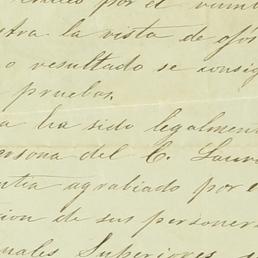 por el
la vista de
o resultado se consig
pruebas.
a ha sido legalmen
ersona del C. Laur
ntia agrabiado por
ion de sus personer
nales Superiores